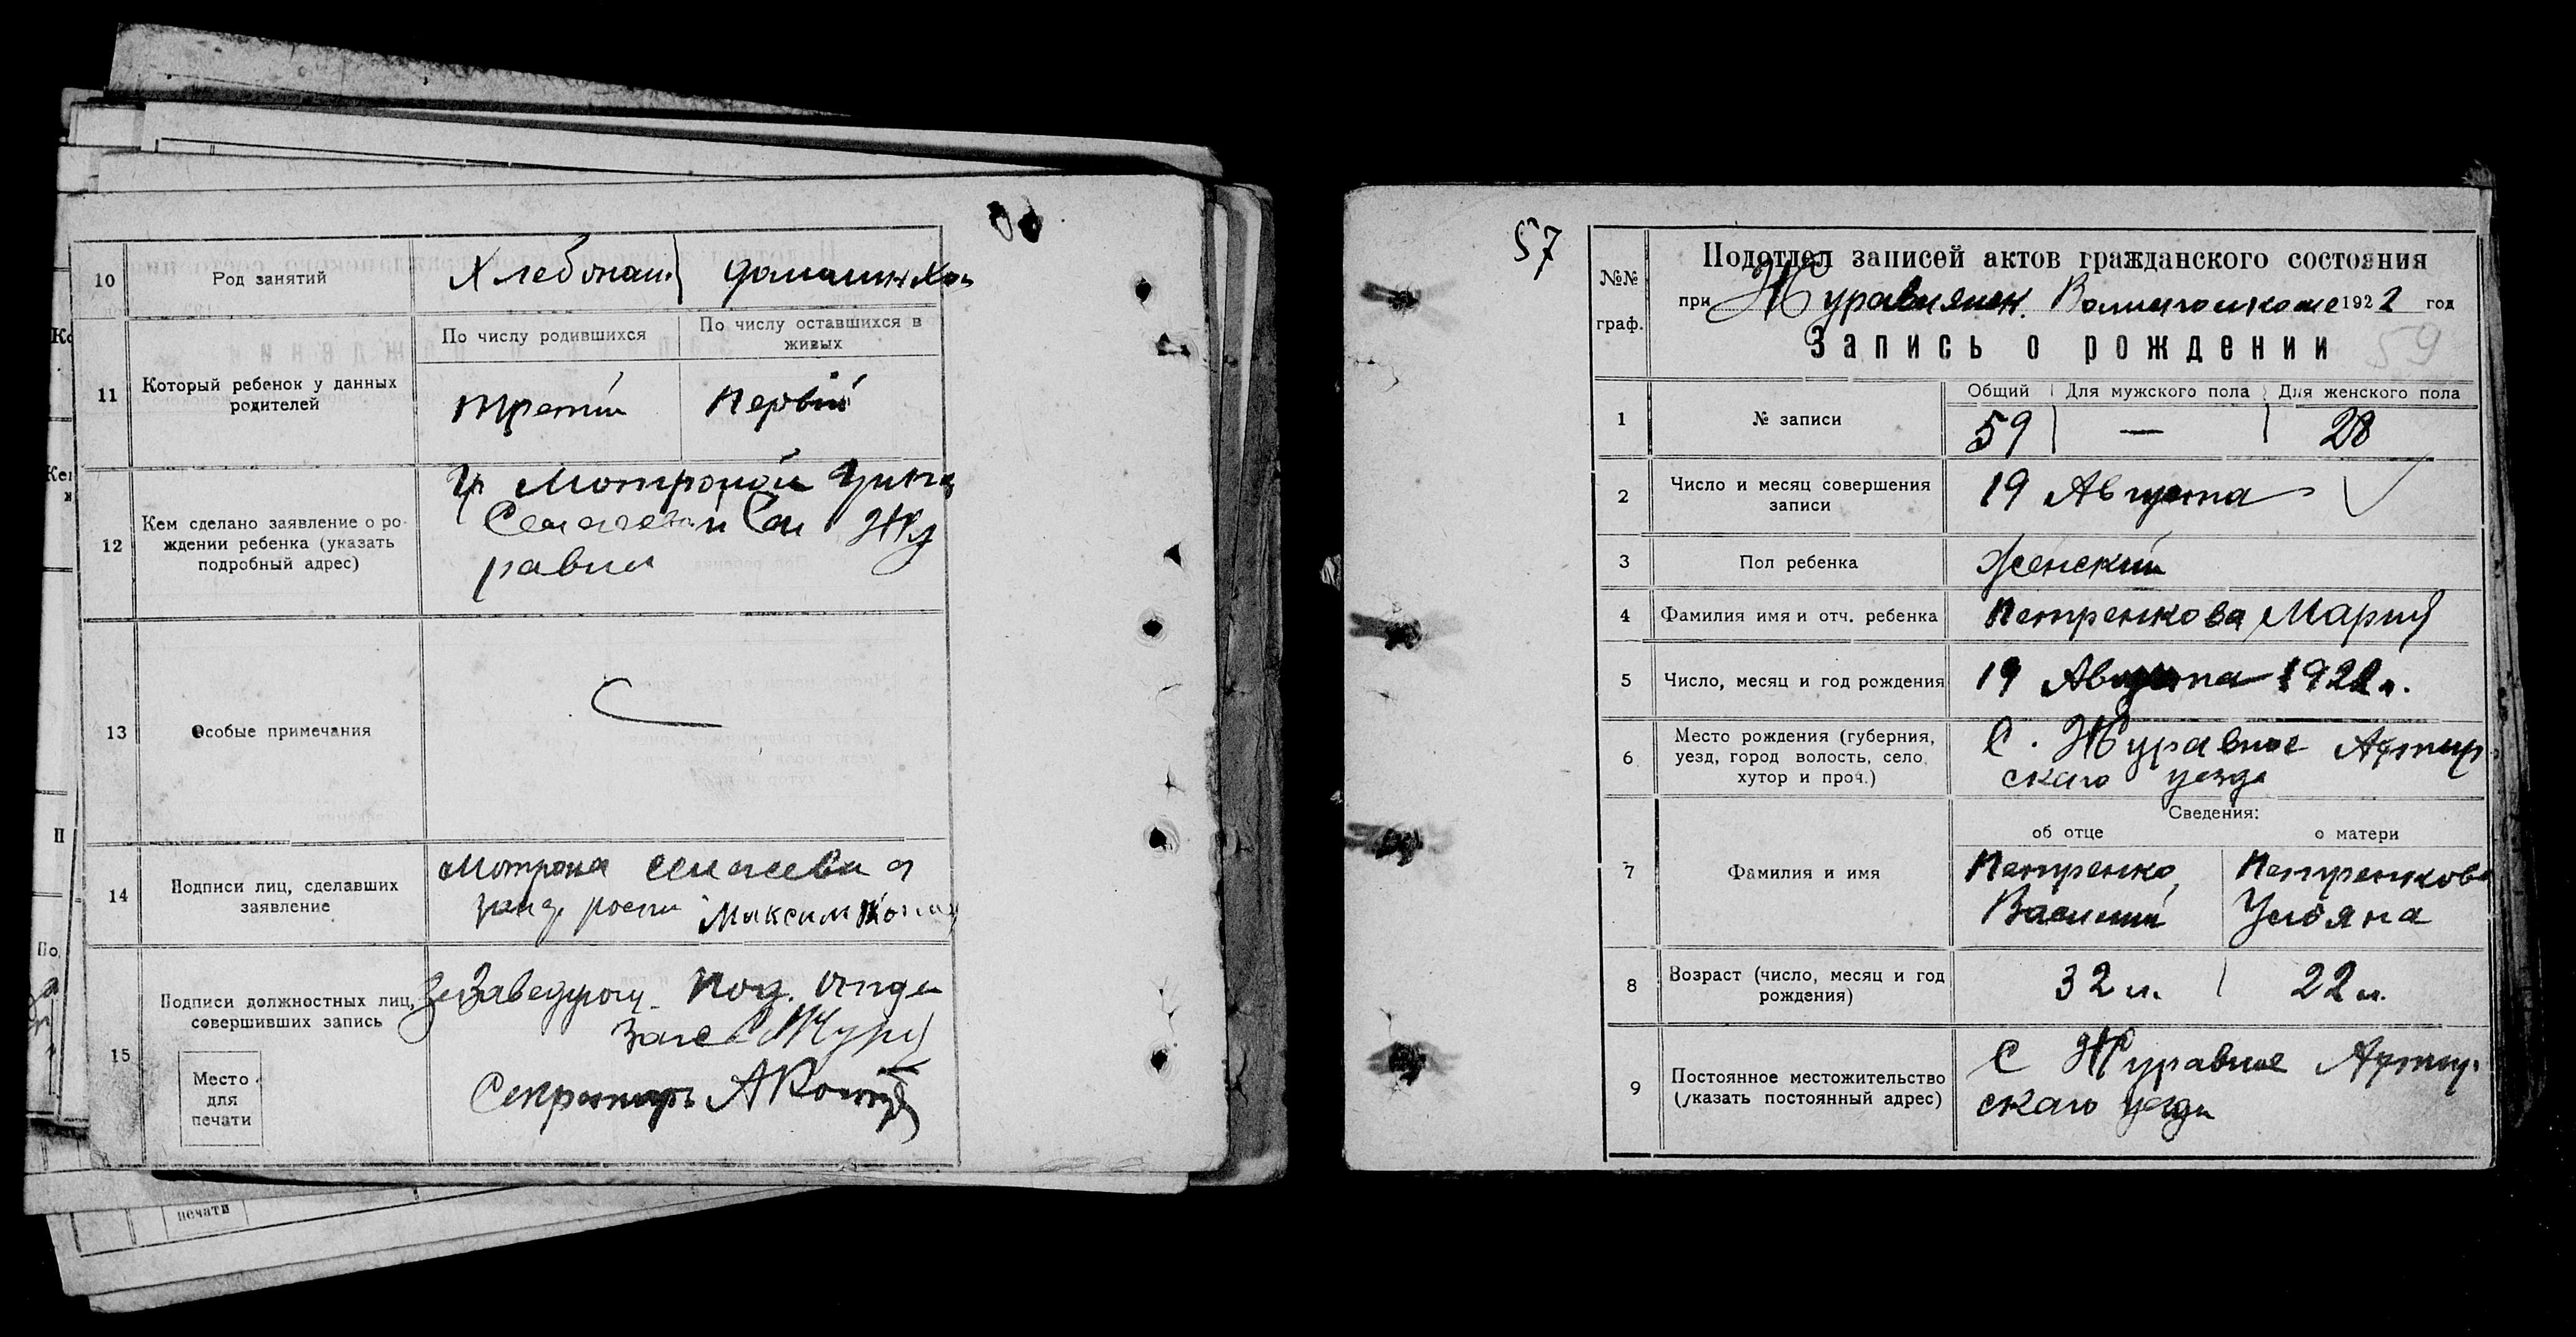 10
Род занятий
Хлебопаш. домашн Хоз
11
Который ребенок у данных
родителей
По числу родившихся
По числу оставшихся в
живых
третий
первый
12
Кем сделано заявление о ро-
ждении ребенка (указать
подробный адрес)
Гр Мотроной
Сел Жу
равна
13
Особые примечания
14
Подписи лиц, сделавших
заявление
Мотрона
Максим
15
Подписи должностных лиц,
совершивших запись
Место
для
печати
Заведующ. Под. Отдел
Загс
Секретарь
печати
57
№№
граф.
Подотдел записей актов гражданского состояния
при Журавлянск. Волисполкоме 1922 год
Запись о рождении
59
1
№ записи
Общий
Для мужского пола
Для женского пола
59 — 28
2
Число и месяц совершения
записи
19 Августа
3
Пол ребенка
женский
4
Фамилия имя и отч. ребенка
Петренкова Мария
5
Число, месяц и год рождения
19 Августа 1922 г.
6
Место рождения (губерния,
уезд, город волость, село,
хутор и проч.)
С. Журавное Ахтыр
скаго уезда
7
Фамилия и имя
Сведения:
об отце
о матери
Петренко
Василий
Петренкова
Ульяна
8
Возраст (число, месяц и год
рождения)
32 л. 22 л.
9
Постоянное местожительство
(указать постоянный адрес)
С Журавное Ахтыр.
скаго уезда